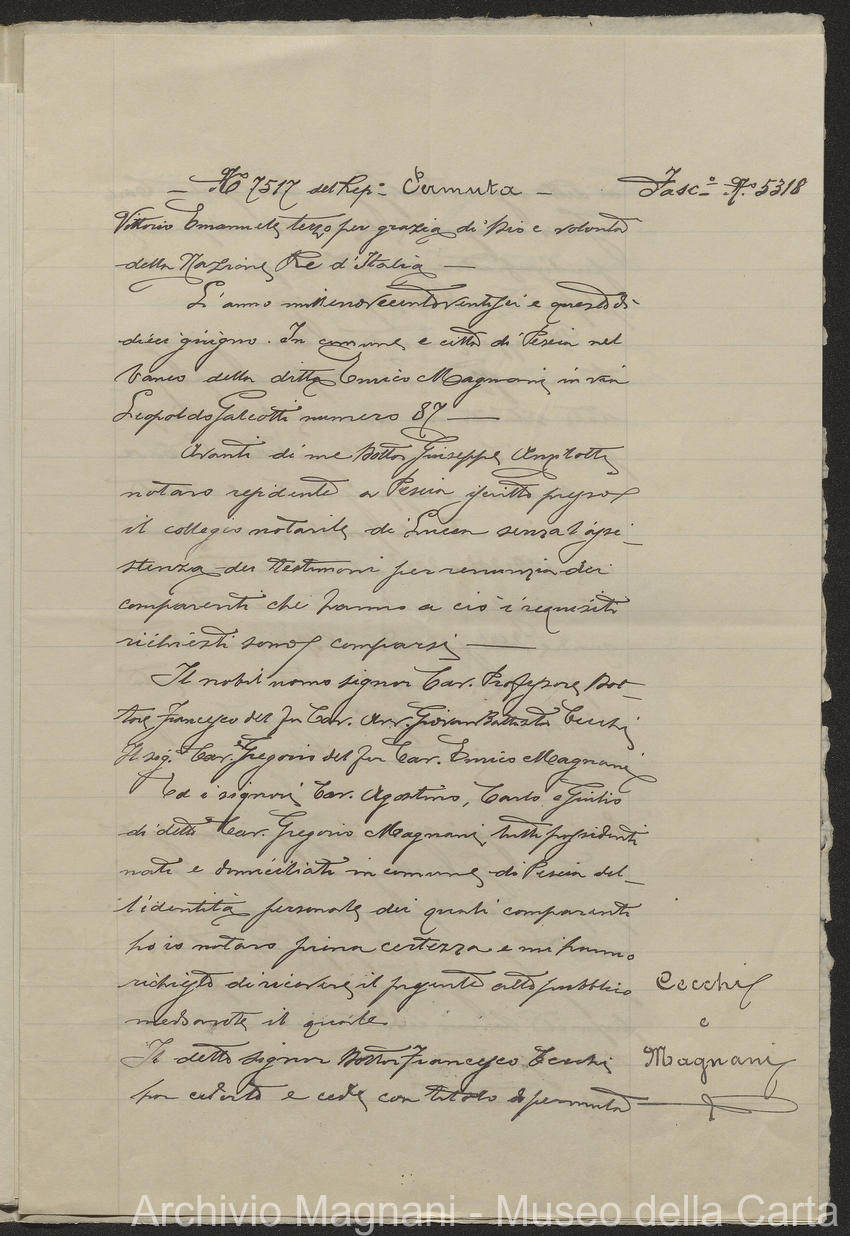 - No 7517 del Rep.o Permuta - Fasc.o No. 5318
Vittorio Emanuele terzo per grazia di Dio e volontà
della Nazione Re d'Italia -
L'anno millenovecentoventisei e questo dì
dieci giugno. In comune e città di Pescia nel
banco della ditta Enrico Magnani in via
Leopoldo Galeotti numero 87 -
Avanti di me Dottor Giuseppe
notaro residente a Pescia iscritto presso
il collegio notarile di Lucca senza l'assi-
stenza dei testimoni per renunzia dei
comparenti che hanno a ciò i requisiti
richiesti sono comparsi -
Il nobil uomo signor Cav. Professore Dot-
tore Francesco del fu Cav. Avv. Giovan Battista Cecchi
Il sig. Cav. Gregorio del fu Cav. Enrico Magnani
Ed i signori Cav. Agostino, Carlo e Giulio
di detto Cav. Gregorio Magnani, tutti possidenti
nati e domiciliati in comune di Pescia del-
l'identità personale dei quali comparenti
ho io notaro piena certezza e mi hanno
richiesto di ricevere il presente atto pubblico
mediante il quale
Il detto signor Dottor Francesco Cecchi
ha ceduto e cede con titolo di permuta
Cecchi
e
Magnani
Archivio Magnani - Museo della Carta